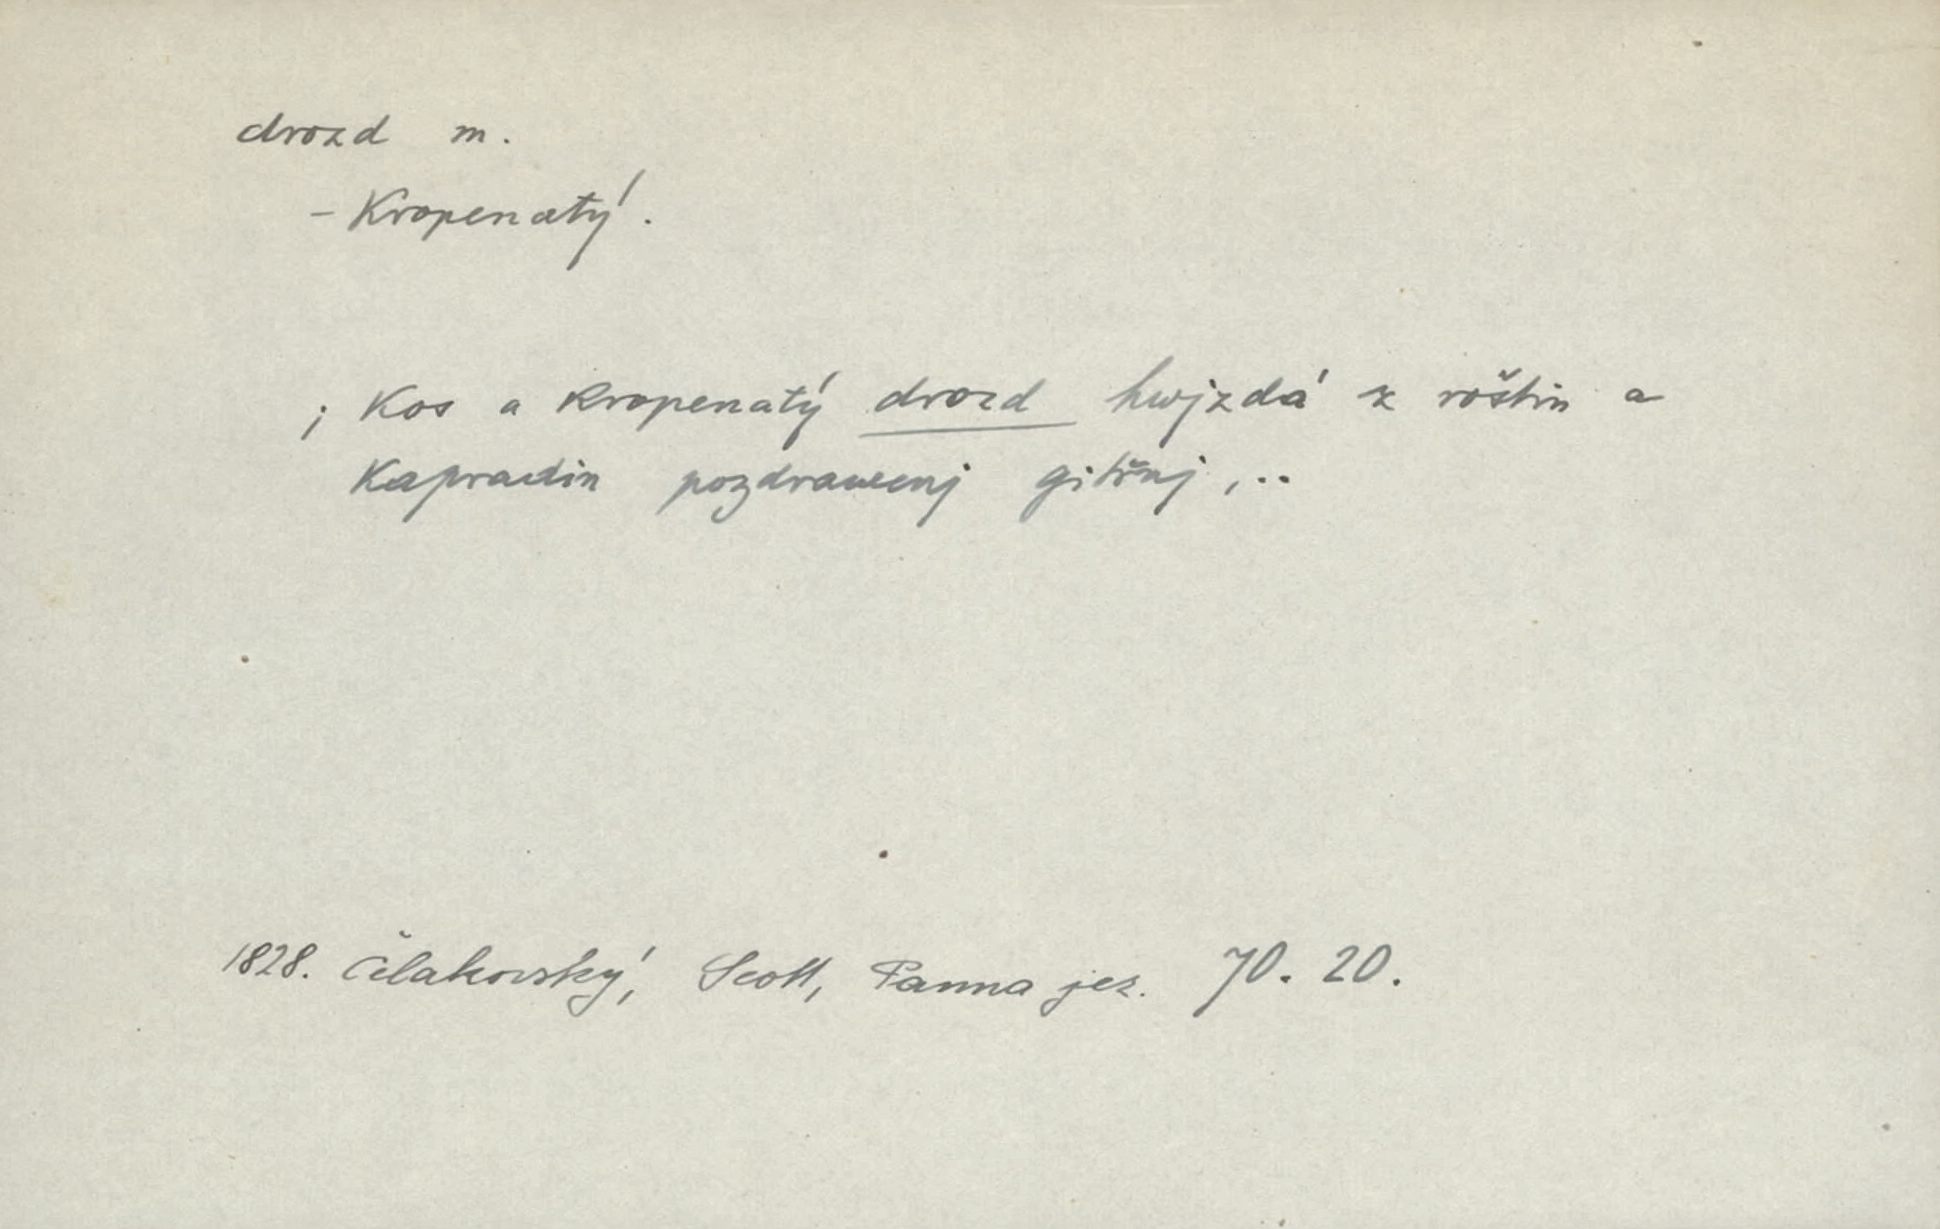 drozd m.
- Kropenatý.
; Kos a kropenatý drozd hwjzdá z roštin a
Kapradin pozdrawenj gitřnj,..
1828. Čelakovský, Scott, Panna jez. 70. 20.